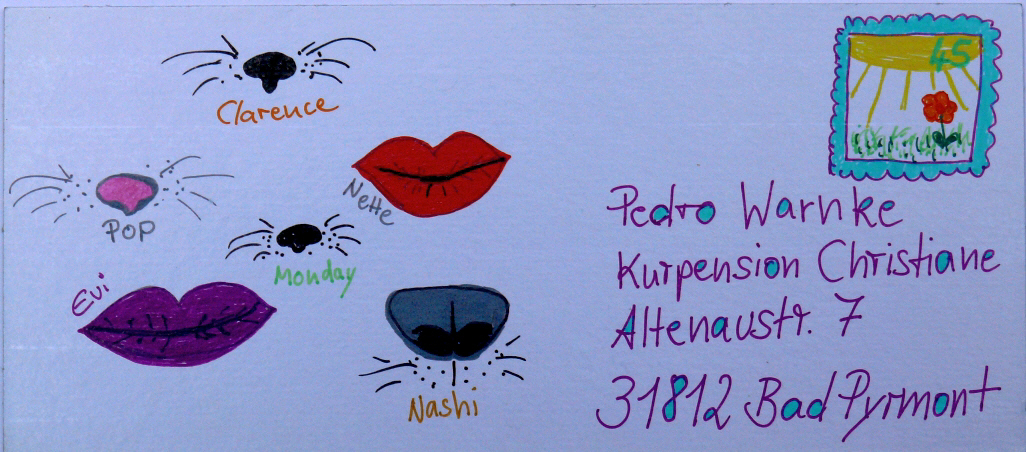 45
Clarence
Nette
Pop
Monday
Evi
Nashi
Pedro Warnke
Kurpension Christiane
Altenaustr. 7
31812 Bad Pyrmont